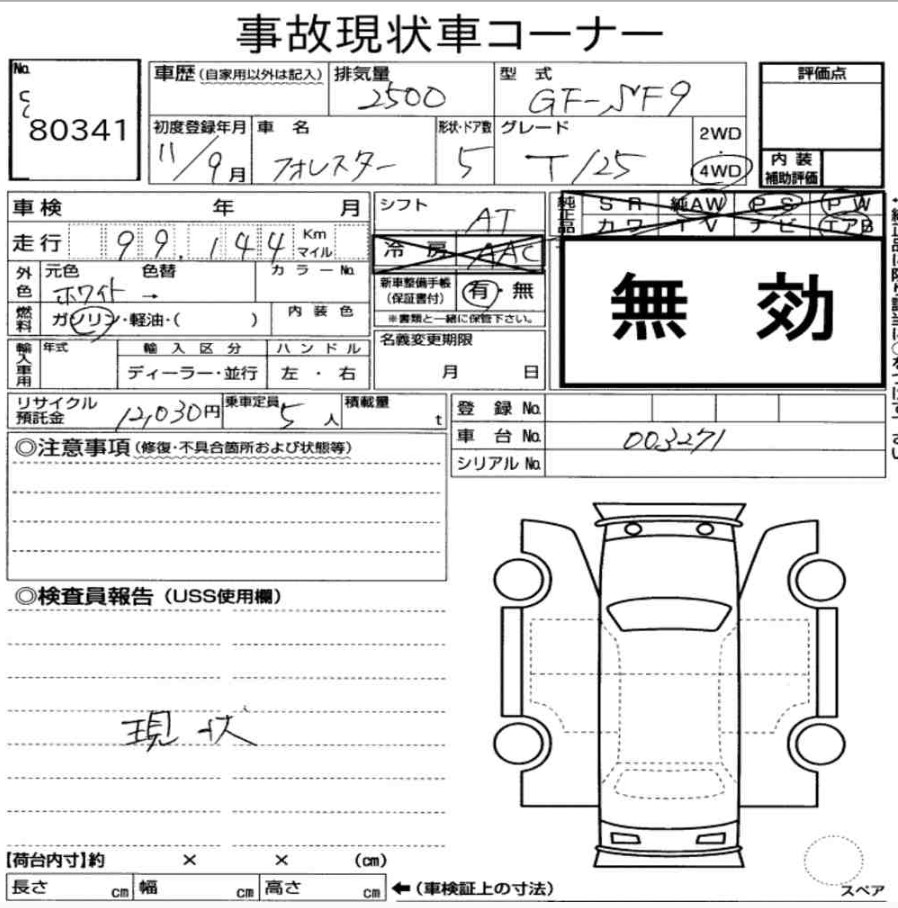 事故現状車コーナー
No.
80341
車歴（自家用以外は記入）
排気量
2500
型式
GF-SF9
評価点
初度登録年月
11/9月
車名
フォレスター
形状・ドア数
5
グレード
T/25
2WD
・
4WD
内装
補助評価
車検 年 月
シフト
AT
純正品
SR 純AW PS PW
カワ TV ナビ エアB
走行 99,144 Km マイル
冷房 AAC
外色
元色 色替 カラーNo.
ホワイト →
新車整備手帳
（保証書付）
有・無
※書類と一緒に保管下さい。
無効
燃料
ガソリン・軽油・（ ）
内装色
輸入車用
年式
輸入区分
ハンドル
ディーラー・並行
左・右
名義変更期限
月 日
リサイクル
預託金
12,030円
乗車定員
5人
積載量
t
登録No.
車台No.
003271
シリアルNo.
◎注意事項（修復・不具合箇所および状態等）
◎検査員報告（USS使用欄）
現状
【荷台内寸】約 × × （cm）
長さ cm 幅 cm 高さ cm
←（車検証上の寸法）
スペア